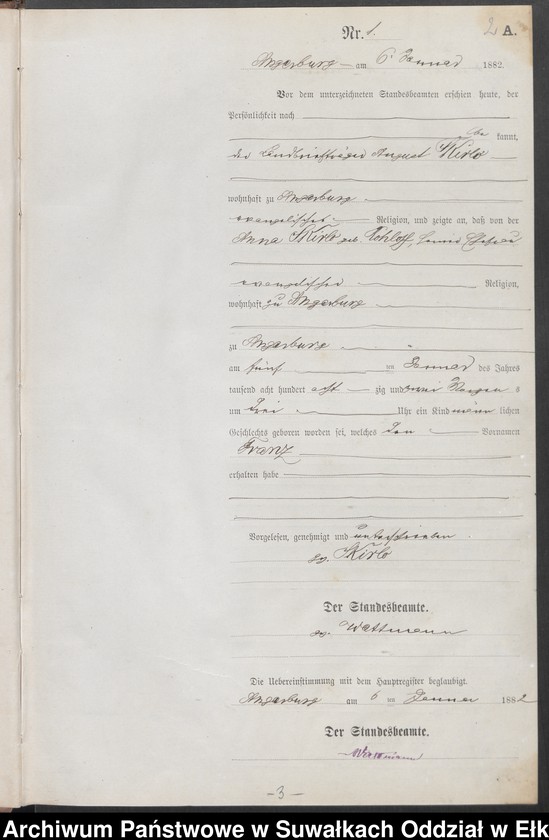 2 A.
Nr. 1.
Angerburg am 6 Januar 1882.
Vor dem unterzeichneten Standesbeamten erschien heute, der
Persönlichkeit nach
be kannt,
der Landbriefträger August Skirlo
wohnhaft zu Angerburg
evangelischer Religion, und zeigte an, daß von der
Anna Skirlo geb. seiner Ehefrau
evangelischer Religion,
wohnhaft zu Angerburg
zu Angerburg
am fünf ten Januar des Jahres
tausend acht hundert acht zig und zwei Morgens
um drei Uhr ein Kind männ lichen
Geschlechts geboren worden sei, welches den Vornamen
Franz
erhalten habe
Vorgelesen, genehmigt und unterschrieben
gz. Skirlo
Der Standesbeamte.
gz. Wattmann
Die Uebereinstimmung mit dem Hauptregister beglaubigt.
Angerburg am 6 ten Januar 1882
Der Standesbeamte.
Wattmann
-3-
Archiwum Państwowe w Suwałkach Oddział w Ełk